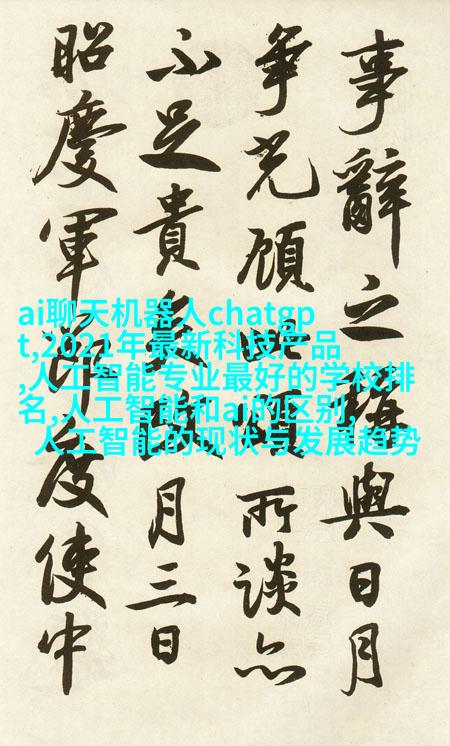 事辭之與日月
爭光顧頌所談亦
不足貴矣月三日
昭慶軍節度使中
ai聊天机器人chatgp
t,2021年最新科技产品
,人工智能专业最好的学校排
名,人工智能和ai的区别,
人工智能的现状与发展趋势